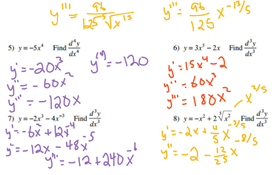 y''' = 96 / 125 ⁵√x¹³
y''' = 96/125 x^-13/5
5) y = -5x⁴ Find d⁴y/dx⁴
y' = -20x³
y'' = -60x²
y''' = -120x
y⁽⁴⁾ = -120
6) y = 3x⁵ - 2x Find d³y/dx³
y' = 15x⁴ - 2
y'' = 60x³
y''' = 180x²
7) y = -2x³ - 4x⁻³ Find d³y/dx³
y' = -6x² + 12x⁻⁴
y'' = -12x - 48x⁻⁵
y''' = -12 + 240x⁻⁶
8) y = -x² + 2 ⁵√x² Find d³y/dx³
y' = -2x + 4/5 x^-3/5
y'' = -2 - 12/25 x^-8/5